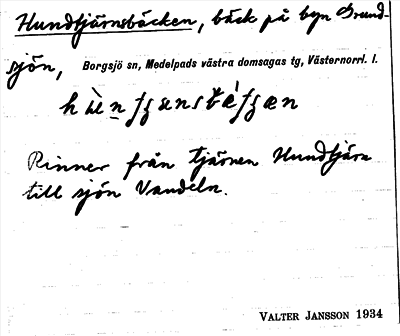 Hundtjärnsbäcken, bäck på byn Grund-
sjön, Borgsjö sn, Medelpads västra domsagas tg, Västernorrl. l.
Rinner från tjärnen Hundtjärn
till sjön Vandeln.
VALTER JANSSON 1934